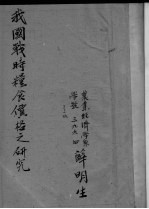 我國戰時糧食價格之研究
農業經濟學系
學號 三六六四
薛明生